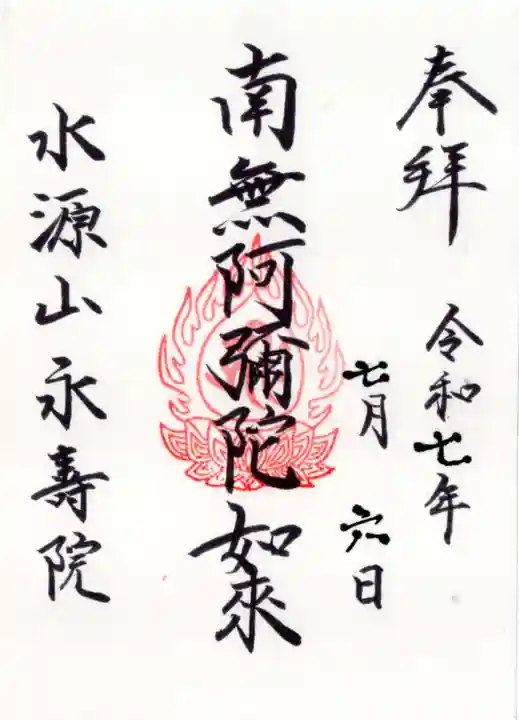 奉拜
令和七年
七月 六日
南無阿彌陀如來
水源山永壽院